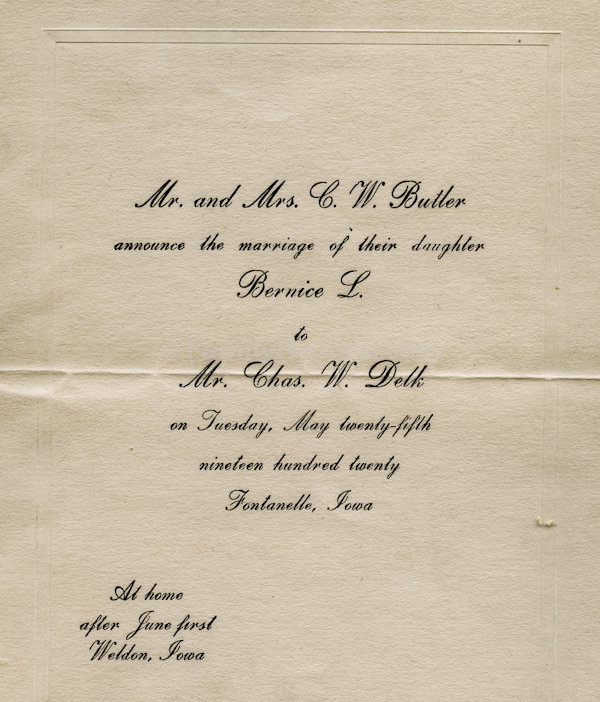 Mr. and Mrs. C. W. Butler
announce the marriage of their daughter
Bernice L.
to
Mr. Chas. W. Delk
on Tuesday, May twenty-fifth
nineteen hundred twenty
Fontanelle, Iowa
At home
after June first
Weldon, Iowa